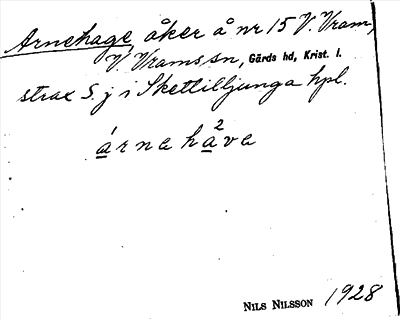 Arnehage, åker å nr 15 V. Vram,
V. Vramssn, Gärds hd, Krist. l.
strax S. j i Skettilljunga hpl.
árnahava
2
NILS NILSSON 1928